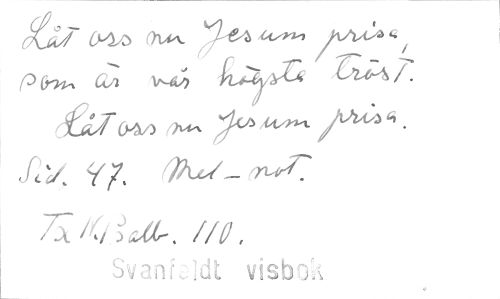 Låt oss nu Jesum prisa,
som är vår högsta tröst.
Låt oss nu Jesum prisa.
Sid. 47. Mel-not.
Tx N. Balb. 110.
Svanfeldt visbok